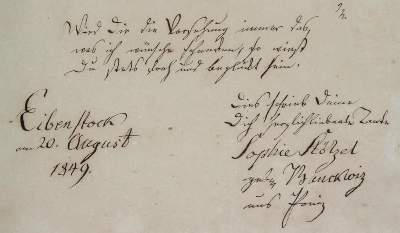 Wird Dir die Vorsehung immer das,
was ich wünsche schenken, so wirst
Du stets froh und beglückt sein.
Eibenstock
am 20. August
1849.
Dies schrieb Deine
Dich herzlichliebende Tante
Sophie Stötzel
geb.
aus